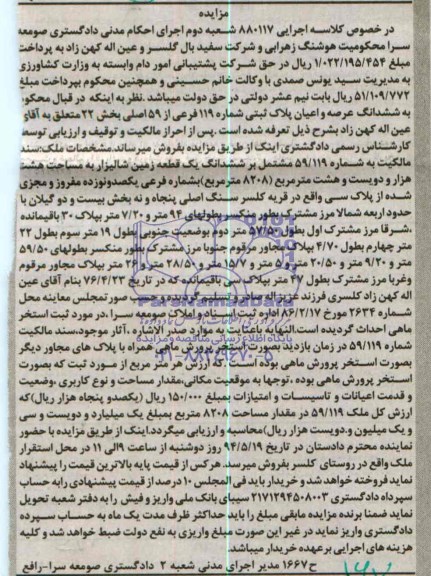 مزایده
در خصوص کلاسه اجرایی ۸۸۰۱۱۷ شعبه دوم اجرای احکام مدنی دادگستری صومعه
سرا محکومیت هوشنگ زهرابی و شرکت سفید بال گلسر و عین اله کهن زاد به پرداخت
مبلغ ۱/۰۲۲/۱۹۵/۴۵۴ ریال در حق شرکت پشتیبانی امور دام وابسته به وزارت کشاورزی
به مدیریت سید یونس صمدی با وکالت خانم حسینی و همچنین محکوم بپرداخت مبلغ
۵۱/۱۰۹/۷۷۲ ریال بابت نیم عشر دولتی در حق دولت میباشد. نظر به اینکه در قبال محکوم
به ششدانگ عرصه واعیان پلاک ثبتی شماره ۱۱۹ فرعی از ۵۹ اصلی بخش ۲۲ متعلق به آقای
عین اله کهن زاد بشرح ذیل تعرفه شده است. پس از احراز مالکیت و توقیف و ارزیابی توسط
کارشناس رسمی دادگستری اینک از طریق مزایده بفروش میرساند. مشخصات ملک: سند
مالکیت به شماره ۵۹/۱۱۹ مشتمل بر ششدانگ یک قطعه زمین شالیزار به مساحت هشت
هزار و دویست و هشت مترمربع (۸۲۰۸ مترمربع) بشماره فرعی یکصدونوزده مفروز و مجزی
شده از پلاک سی واقع در قریه کلسر سنگ اصلی پنجاه و نه بخش بیست و دو گیلان با
حدود اربعه شمالا مرز مشترک بطور منکسر بطولهای ۹۴ متر و ۷/۲۰ متر بپلاک ۳۰ باقیمانده
،شرقا مرز مشترک اول بطول ۵۷/۵۰ متر دوم بوضعیت جنوبی بطول ۱۹ متر سوم بطول ۲۲
متر چهارم بطول ۴/۷۰ بپلاک مجاور مرقوم جنوبا مرز مشترک بطور منکسر بطولهای ۵۹/۵۰
متر و ۹/۲۰ متر و ۲۰/۵۰ متر و ۵ متر و ۱۵/۷ متر و ۲۸/۵۰ متر و ۲۶ متر بپلاک مجاور مرقوم
وغربا مرز مشترک بطول ۴۷ متر بپلاک سی باقیمانده که در تاریخ ۷۶/۴/۲۳ بنام آقای عین
اله کهن زاد کلسری فرزند عزیزاله صادر و تسلیم گردیده و حسب صورتمجلس معاینه محل
شماره ۲۶۳۴ مورخ ۸۶/۲/۱۷ اداره ثبت اسناد و املاک صومعه سرا ،در مورد ثبت استخر
ماهی احداث گردیده است.النهایه باعنایت به موارد صدر الاشاره ،آثار موجود،سند مالکیت
شماره ۵۹/۱۱۹ در زمان بازدید بصورت استخر پرورش ماهی همراه با پلاک های مجاور دیگر
بصورت استخر پرورش ماهی بوده است که ارزش هر متر مربع از مورد ثبت که بصورت
استخر پرورش ماهی بوده ،توجها به موقعیت مکانی،مقدار مساحت و نوع کاربری ،وضعیت
و قدمت اعیانات و تاسیسات و امتیازات بمبلغ ۱۵۰/۰۰۰ ریال (یکصدو پنجاه هزار ریال)که
ارزش کل ملک ۵۹/۱۱۹ در مقدار مساحت ۸۲۰۸ مترمربع بمبلغ یک میلیارد و دویست و سی
و یک میلیون و.دویست هزار ریال)محاسبه و ارزیابی میگردد.اینک از طریق مزایده با حضور
نماینده محترم دادستان در تاریخ ۹۴/۵/۱۹ روز دوشنبه از ساعت ۹الی ۱۱ در محل استقرار
ملک واقع در روستای کلسر بفروش میرسد. هرکس از قیمت پایه بالاترین قیمت را پیشنهاد
نماید فروخته خواهد شد و خریدار باید فی المجلس ۱۰درصد از قیمت پیشنهادی رابه حساب
سپرداه دادگستری ۲۱۷۱۲۹۴۵۰۸۰۰۳ سیبای بانک ملی واریز و فیش را به دفتر شعبه تحویل
نماید ضمنا برنده مزایده مابقی مبلغ را باید حداکثر ظرف مدت یک ماه به حساب سپرده
دادگستری واریز نماید در غیر این صورت مبلغ واریزی به نفع دولت ضبط خواهد شد و کلیه
هزینه های اجرایی برعهده خریدار میباشد.
ح۱۶۶۷ مدیر اجرای مدنی شعبه ۲ دادگستری صومعه سرا-رافع
پایگاه اطلاع رسانی مناقصه و مزایده
۰۲۱-۸۸۳۴۹۶۷۰-۵